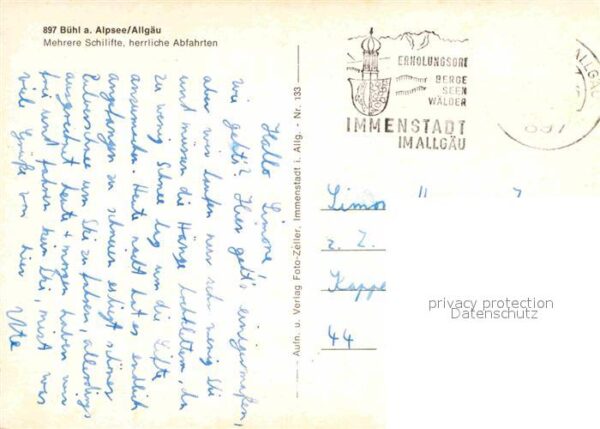 897 Bühl a. Alpsee/Allgäu
Mehrere Schilifte, herrliche Abfahrten
Hallo Simone!
wie geht's? Hier geht's einigermaßen,
aber wir laufen nur sehr wenig Ski
und müssen die Hänge hochklettern, da
zu wenig Schnee lag um die Lifte
anzuwenden. Heute nacht hat es endlich
angefangen zu schneien schöner
um Ski zu fahren, allerdings
ausgerechnet heute + morgen haben wir
frei und fahren kein Ski, mist was
viele Grüße von hier
Ute
Aufn. u. Verlag Foto-Zeller, Immenstadt i. Allg. - Nr. 133
ERHOLUNGSORT
BERGE
SEEN
WÄLDER
IMMENSTADT
IM ALLGÄU
ALLGÄU
897
Simo
z. Z.
Kappe
44
privacy protection
Datenschutz